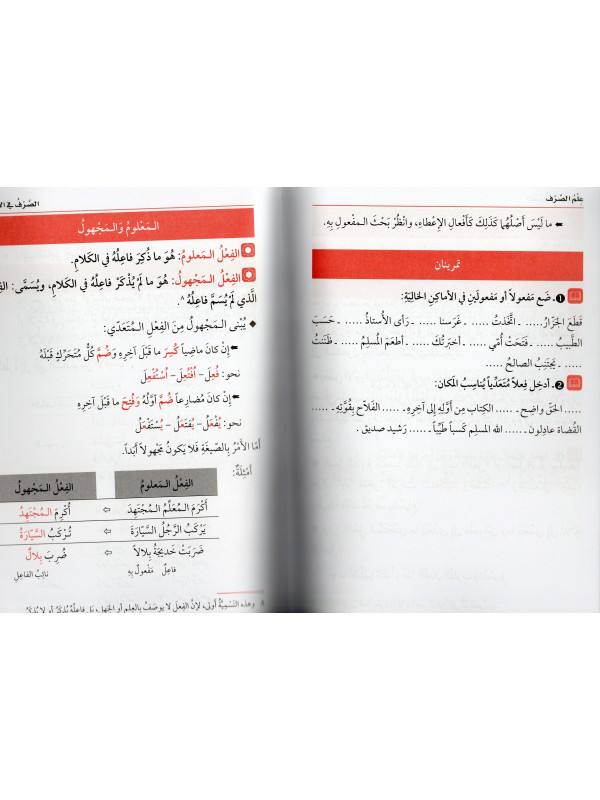 عِلْمُ الصَّرْف
⬅ ما لَيْسَ أَصْلُهُما كَذَلِكَ كَأَفْعالِ الإِعْطاءِ، وانْظُرْ بَحْثَ المَفْعولِ بِهِ.
تمرينان
❶. ضَع مَفعولاً أو مَفعولَينِ في الأماكِنِ الخالِيَةِ:
قَطَعَ الجَزّارُ ..... ـ اتَّخَذتُ ..... ـ غَرَسنا ..... ـ رَأى الأُستاذُ ..... ـ حَسَبَ
الطَّبيبُ ..... ـ فَتَحَتْ أُمّي ..... ـ أخبَرتُكَ ..... ـ أطعَمَ المُسلِمُ ..... ـ ظَنَنتُ
..... ـ يَجتَنِبُ الصالِحُ .....
❷. أدخِل فِعلاً مُتَعَدِّياً يُناسِبُ المَكان:
..... الحَق واضِح ـ ..... الكِتاب مِن أوَّلِهِ إلى آخِرِهِ ـ ..... الفَلاح بِقُوَّتِهِ ـ .....
القُضاة عادِلون ـ ..... الله المسلِم كَسباً طَيِّباً ـ ..... رَشيد صديق .
الصَّرْفُ في
المَعْلومُ وَالمَجْهولُ
الفِعْلُ المَعلومُ: هُوَ ما ذُكِرَ فاعِلُهُ في الكَلامِ.
الفِعْلُ المَجْهولُ: هُوَ ما لَمْ يُذْكَرْ فاعِلُهُ في الكَلامِ، ويُسَمَّى: الفِعْلَ
الَّذي لَمْ يُسَمَّ فاعِلُهُ ٨.
◆ يُبْنى المَجْهولُ مِنَ الفِعْلِ المُتَعَدِّي:
⬅ إن كانَ ماضِياً كُسِرَ ما قَبْلَ آخِرِهِ وَضُمَّ كُلُّ مُتَحَرِّكٍ قَبْلَهُ
نحو: فُعِلَ - اُفْتُعِلَ - اُسْتُفْعِلَ
⬅ إن كانَ مُضارِعاً ضُمَّ أوَّلُهُ وَفُتِحَ ما قَبْلَ آخِرِهِ
نحو: يُفْعَلُ - يُفتَعَلُ - يُسْتَفْعَلُ
أمّا الأَمْرُ بِالصِّيغَةِ فَلا يَكونُ مَجْهولاً أبَداً.
أمْثِلَةٌ:
الفِعْلُ المَعلومُ الفِعْلُ المَجْهولُ
أَكْرَمَ المُعَلِّمُ المُجْتَهِدَ ⇦ أُكْرِمَ المُجْتَهِدُ
يَرْكَبُ الرَّجُلُ السَّيّارَةَ ⇦ تُرْكَبُ السَّيّارَةُ
ضَرَبَتْ خَديجَةُ بِلالاً ⇦ ضُرِبَ بِلالٌ
فاعِلٌ مَفْعولٌ بِهِ نائِبُ الفاعِلِ
٨ وهَذِهِ التَّسْمِيَةُ أَولى، لأنَّ الفِعْلَ لا يوصَفُ بِالعِلمِ أوِ الجَهلِ، بَل فاعِلُهُ يُذْكَرُ أو لا يُذْكَرُ